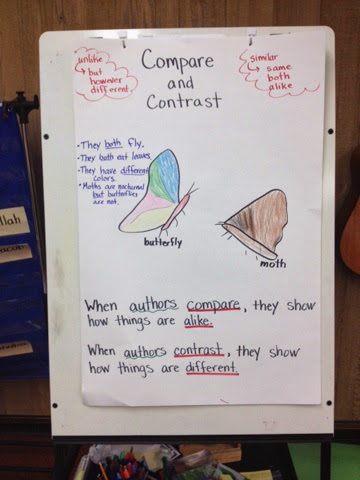 Compare
and
Contrast
unlike
but
however
different
similar
same
both
alike
• They both fly.
• They both eat leaves.
• They have different
colors.
• Moths are nocturnal
but butterflies
are not.
butterfly
moth
When authors compare, they show
how things are alike.
When authors contrast, they show
how things are different.
llah